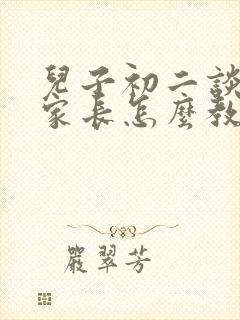 兒子初二談
家長怎麼教
嚴翠芳